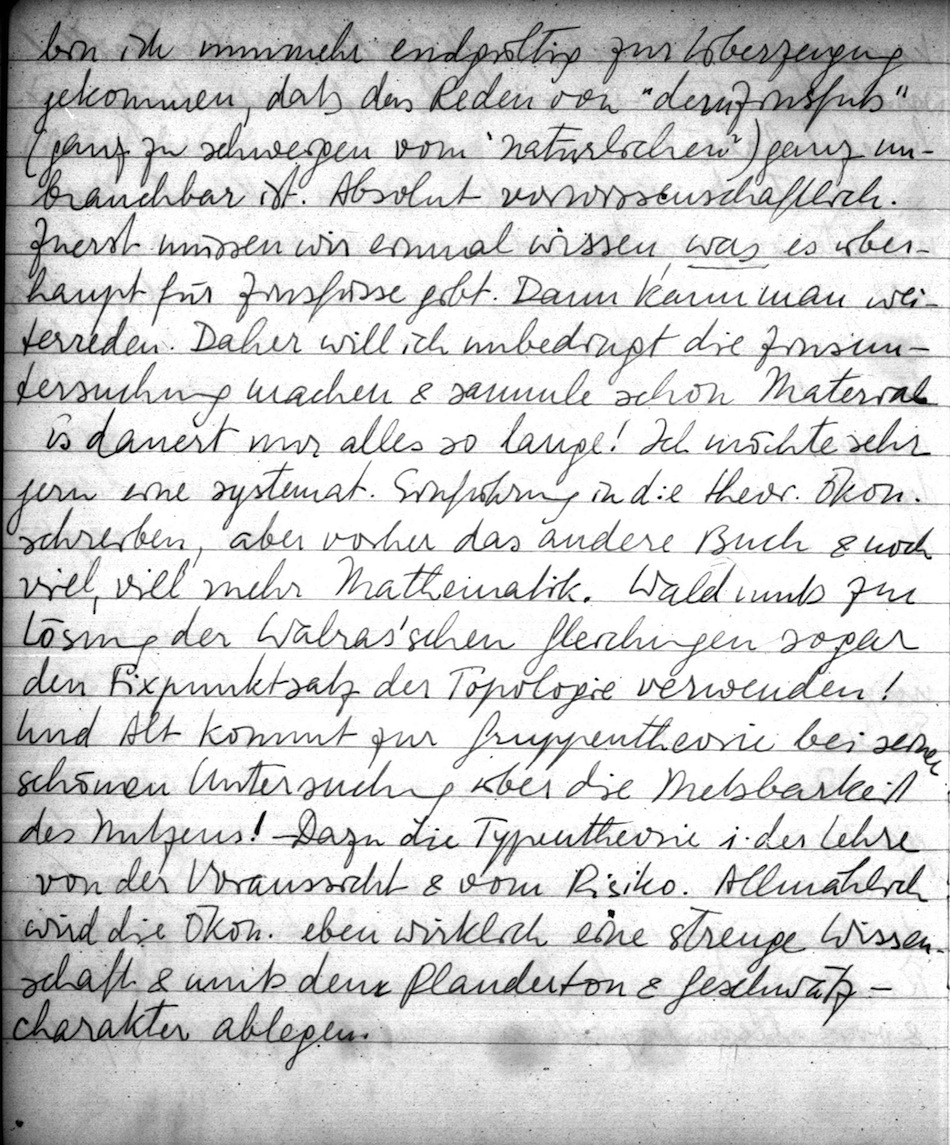 bin ich nunmehr endgültig zur Überzeugung
gekommen, daß das Reden von "dem Zinsfuß"
(ganz zu schweigen vom "natürlichen") ganz un-
brauchbar ist. Absolut vorwissenschaftlich.
Zuerst müssen wir einmal wissen, was es über-
haupt für Zinsfüsse gibt. Dann kann man wei-
terreden. Daher will ich unbedingt die Zinsun-
tersuchung machen & sammle schon Material
Es dauert nur alles so lange! Ich möchte sehr
gern eine systemat. Einführung in die theor. Ökon.
schreiben, aber vorher das andere Buch & noch
viel, viel mehr Mathematik. Wald muß zur
Lösung der Walras'schen Gleichungen sogar
den Fixpunktsatz der Topologie verwenden!
Und Alt kommt zur Gruppentheorie bei seiner
schönen Untersuchung über die Meßbarkeit
des Nutzens! – Dazu die Typentheorie i. der Lehre
von der Voraussicht & vom Risiko. Allmählich
wird die Ökon. eben wirklich eine strenge Wissen-
schaft & muß den Plauderton & Geschwätz-
charakter ablegen.